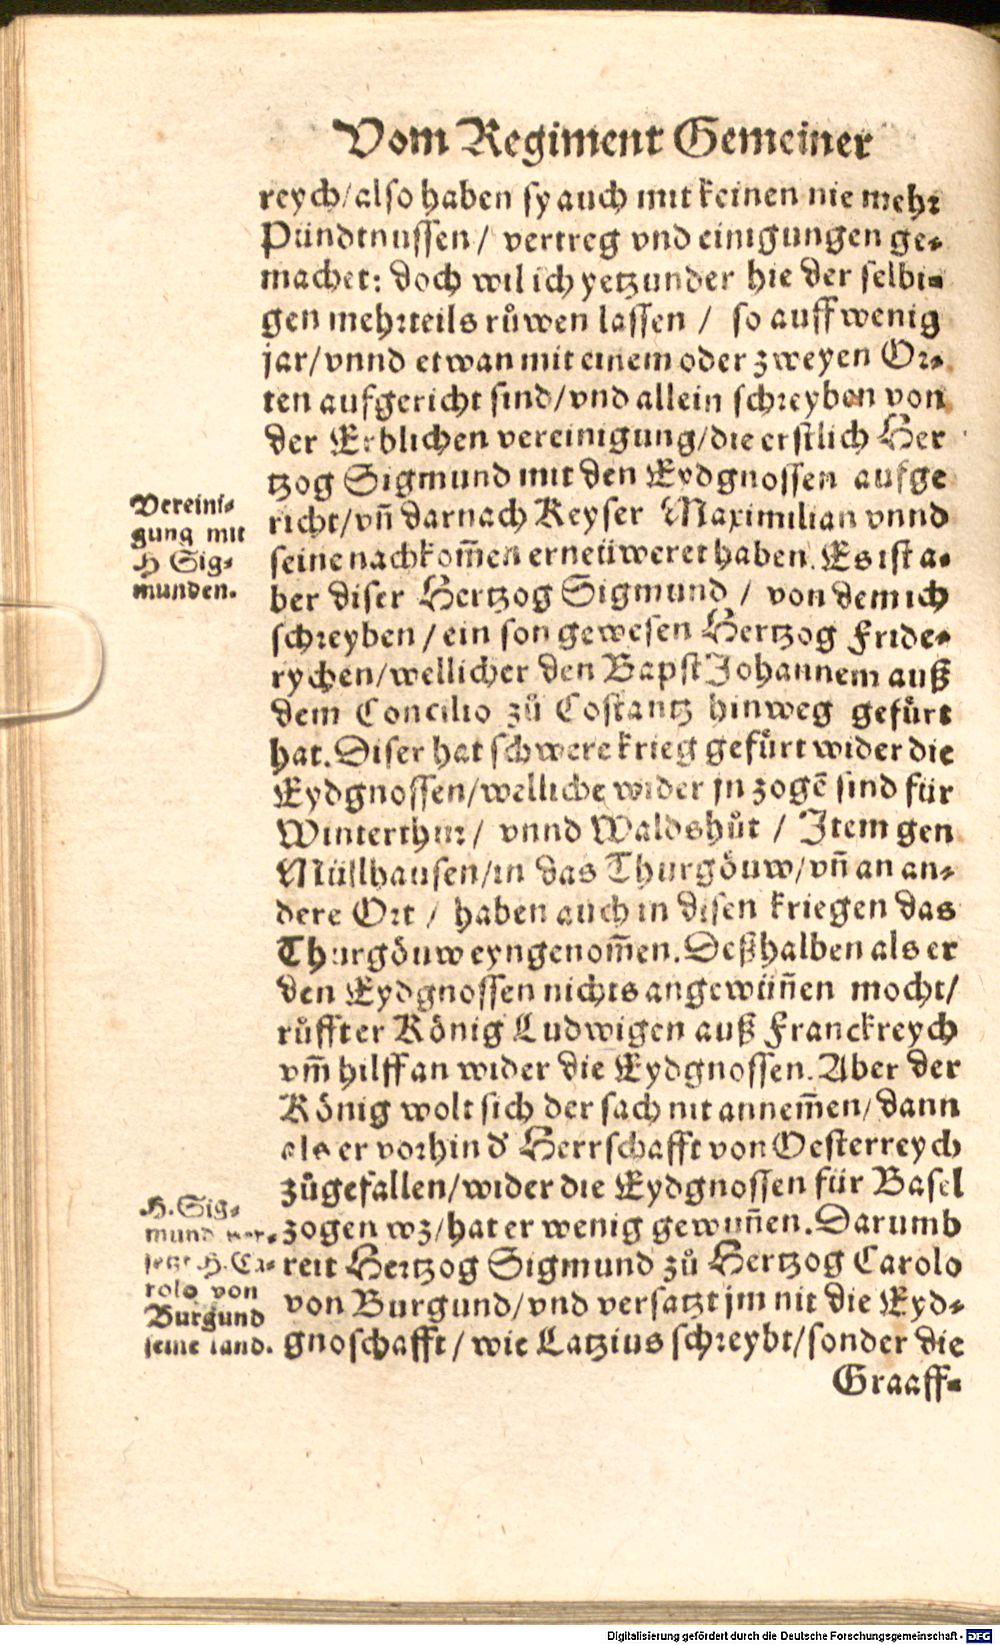 Vom Regiment Gemeiner
reych/also haben sy auch mit keinen nie mehr
Pündtnussen / vertreg vnd einigungen ge-
machet: doch wil ich yetzunder hie der selbi-
gen mehrteils růwen lassen / so auff wenig
jar/vnnd etwan mit einem oder zweyen Or-
ten aufgericht sind/vnd allein schreyben von
der Erblichen vereinigung/die erstlich Her
tzog Sigmund mit den Eydgnossen aufge
richt/vñ darnach Keyser Maximilian vnnd
seine nachkom̃en erneüweret haben. Es ist a-
ber diser Hertzog Sigmund / von dem ich
schreyben / ein son gewesen Hertzog Fride-
rychen/wellicher den Bapst Johannem auß
dem Concilio zů Costantz hinweg gefůrt
hat. Diser hat schwere krieg gefůrt wider die
Eydgnossen/welliche wider jn zogẽ sind für
Winterthur / vnnd Waldshůt / Item gen
Müllhausen/in das Thurgöuw/vñ an an-
dere Ort / haben auch in disen kriegen das
Thurgöuw eyngenom̃en. Deßhalben als er
den Eydgnossen nichts angewüñen mocht/
růfft er König Ludwigen auß Franckreych
vm̃ hilff an wider die Eydgnossen. Aber der
König wolt sich der sach nit annem̃en/dann
als er vorhin d' Herrschafft von Oesterreych
zůgefallen/wider die Eydgnossen für Basel
zogen wz/hat er wenig gewuñen. Darumb
reit Hertzog Sigmund zů Hertzog Carolo
von Burgund/vnd versatzt jm nit die Eyd-
gnoschafft / wie Latzius schreybt/sonder die
Graaff-
Vereini-
gung mit
H Sig-
munden.
H. Sig-
mund ver-
setzt H. Ca-
rolo von
Burgund
seine land.
Digitalisierung gefördert durch die Deutsche Forschungsgemeinschaft - DFG